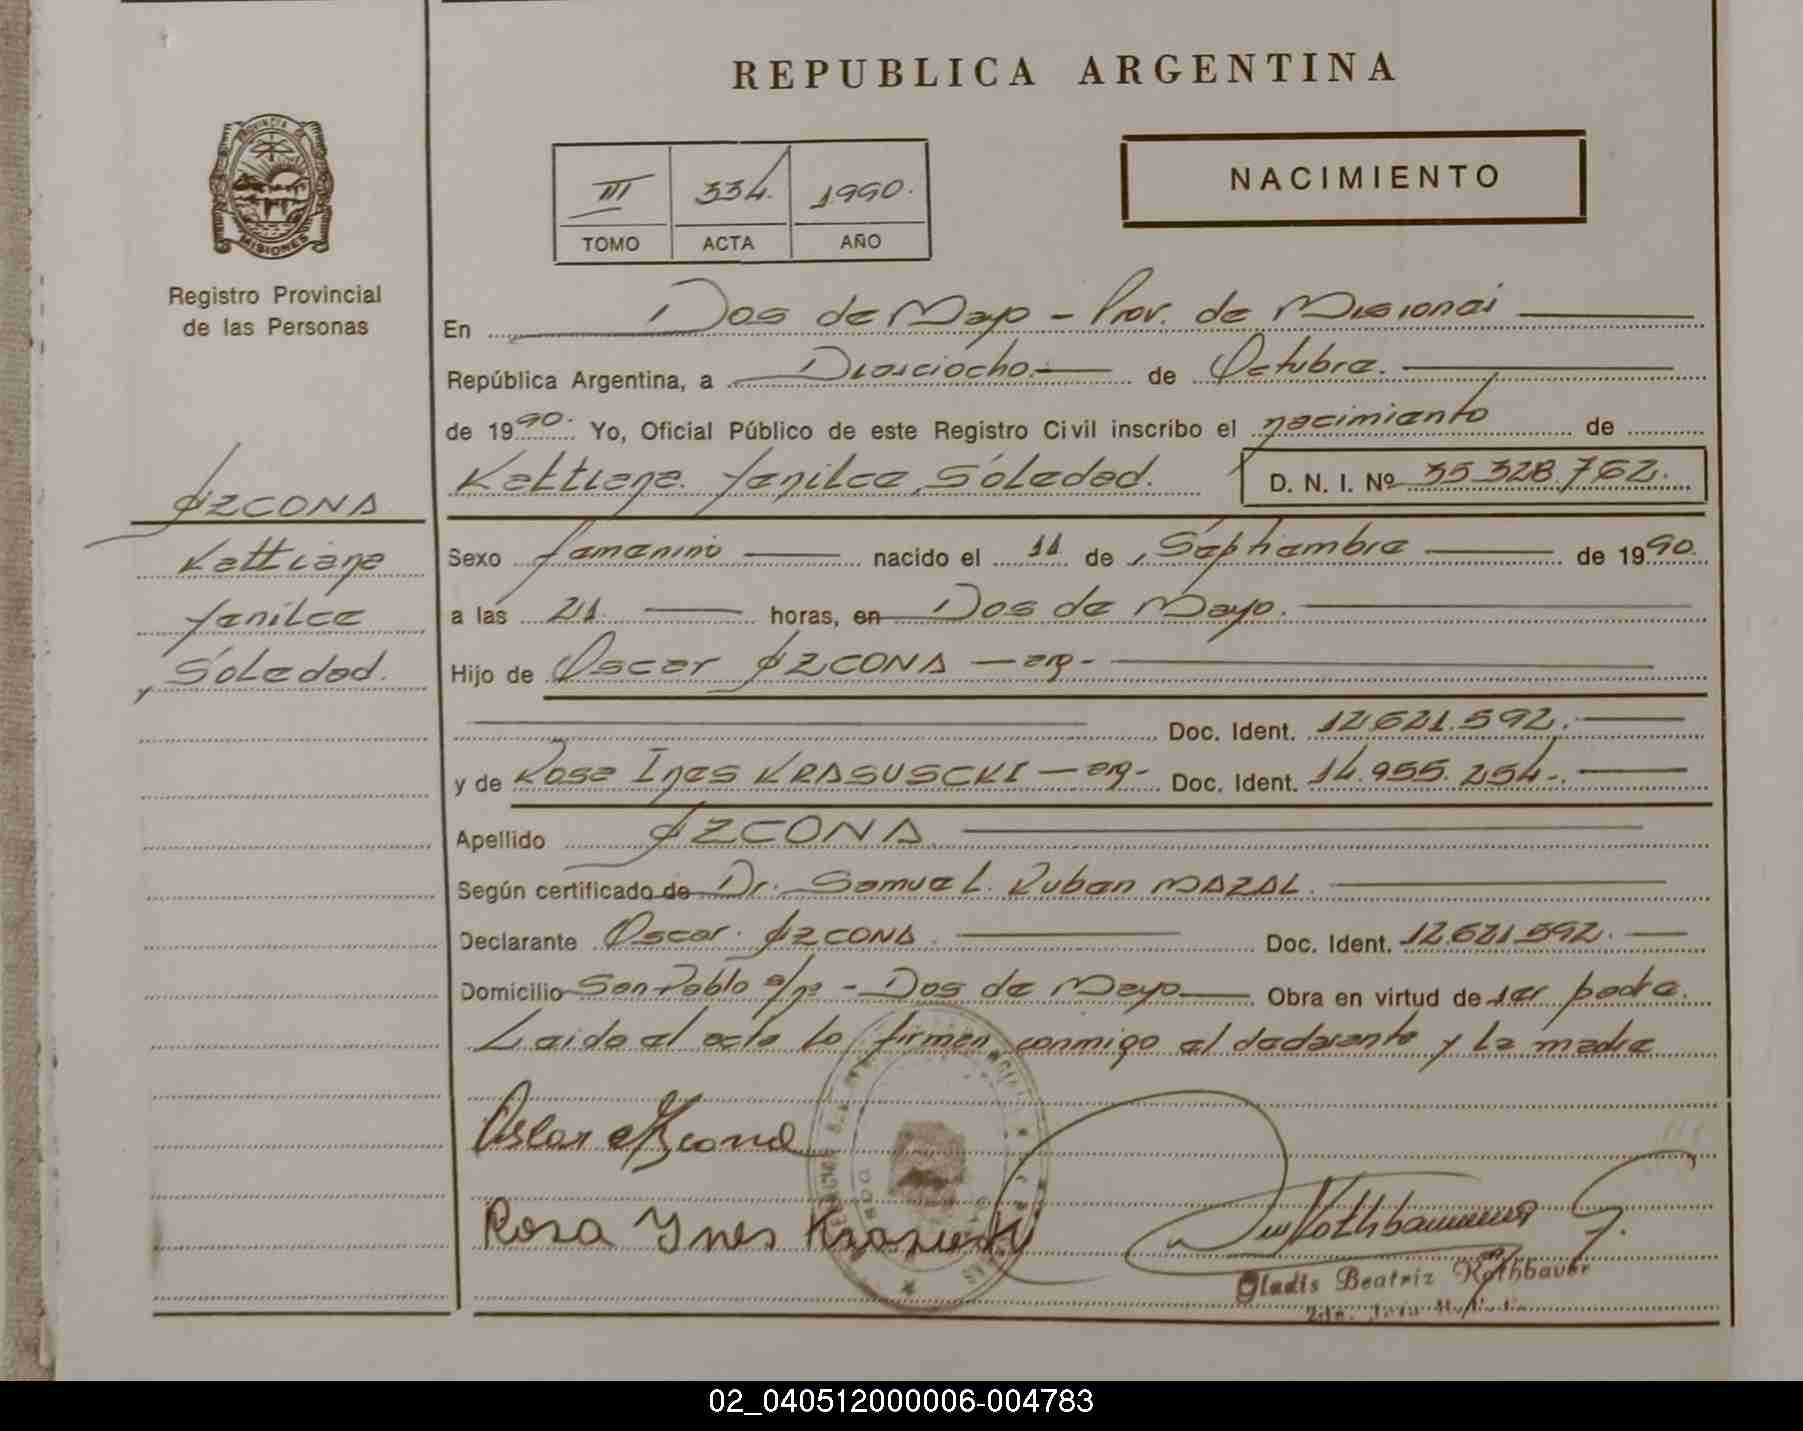 REPUBLICA ARGENTINA
PROVINCIA DE
MISIONES
Registro Provincial
de las Personas
III 334. 1990.
TOMO ACTA AÑO
NACIMIENTO
En Dos de Mayo - Prov. de Misiones
República Argentina, a Dieciocho de Octubre.
de 1990. Yo, Oficial Público de este Registro Civil inscribo el nacimiento de
Kattiana Yanilce Soledad. D. N. I. Nº 35.328.762.
AZCONA
Kattiana
Yanilce
Soledad.
Sexo femenino nacido el 11 de Septiembre de 1990.
a las 21. horas, en Dos de Mayo.
Hijo de Oscar AZCONA - arg -
Doc. Ident. 12.621.592.
y de Rosa Ines KRASUSCKI - arg - Doc. Ident. 14.955.254.
Apellido AZCONA
Según certificado de Dr. Samuel Ruben MAZAL.
Declarante Oscar AZCONA Doc. Ident. 12.621.592.
Domicilio San Pablo s/nº - Dos de Mayo Obra en virtud de ser padre.
Leida el acta la firman conmigo el declarante y la madre
Oscar Azcona
Rosa Ynes
Gladis Beatriz Rothbauer
02_040512000006-004783